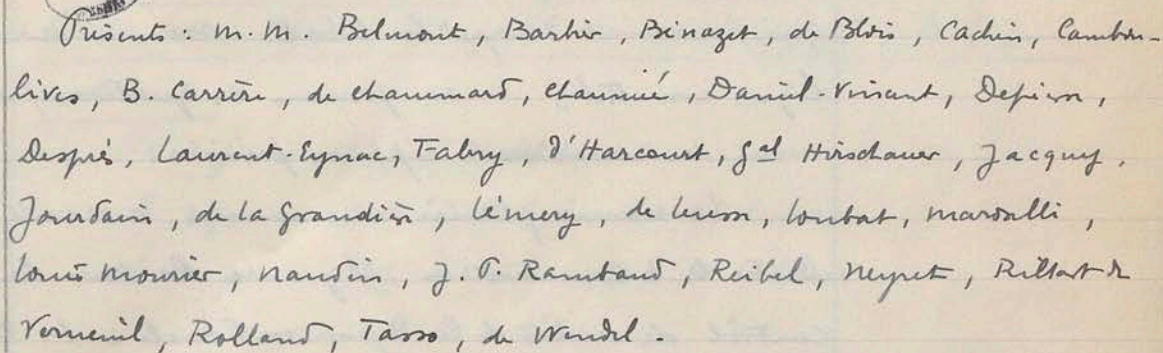 Présents : M.M. Belmont, Barbier, Binazet, de Blois, Cachin, Cambon-
lives, B. Carrère, de Chammard, Chaumié, Daniel-Vincent, Depierre,
Desprès, Laurent-Eynac, Fabry, d'Harcourt, Gal Hirschauer, Jacquy,
Jourdain, de la Grandière, Lémery, de Leusse, Loubat, Marsalli,
Louis Mourier, Naudin, J. P. Rambaud, Reibel, Neyret, Rillart de
Verneuil, Rolland, Tasso, de Wendel.